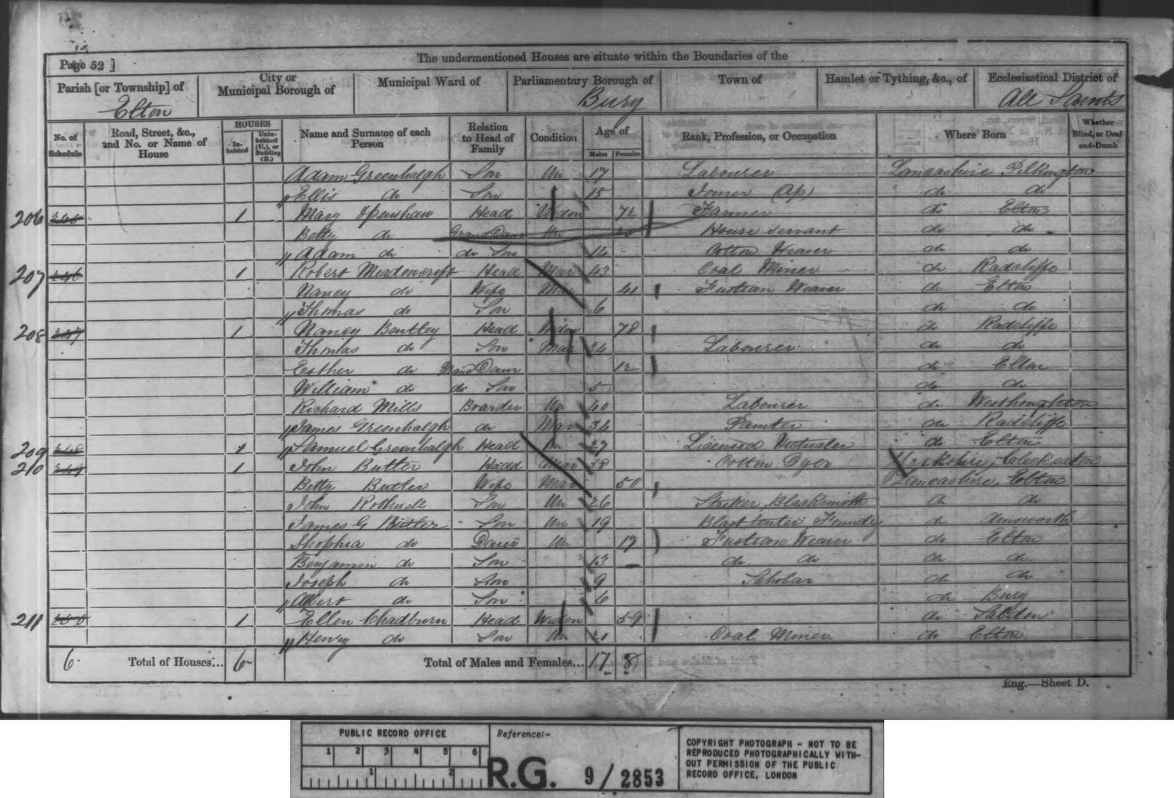 Page 52 ]
The undermentioned Houses are situate within the Boundaries of the
Parish [or Township] of
City or Municipal Borough of
Municipal Ward of
Parliamentary Borough of
Town of
Hamlet or Tything, &c., of
Ecclesiastical District of
Elton
Bury
All Saints
No. of Schedule
Road, Street, &c., and No. or Name of House
HOUSES
Inhabited
Uninhabited (U.), or Building (B.)
Name and Surname of each Person
Relation to Head of Family
Condition
Age of
Males
Females
Rank, Profession, or Occupation
Where Born
Whether Blind, or Deaf-and-Dumb
Adam Greenhalgh Son Un 17 Labourer Lancashire Pilkington
Ellis do Son 15 Joiner (Ap) do do
206 1 Mary Openshaw Head Widow 72 Farmer do Elton
Betty do Grand Daur Un House Servant do do
Adam do do Son 14 Cotton Weaver do do
207 1 Robert Head Mar 43 Coal Miner do Radcliffe
Nancy do Wife Mar 41 Fustian Weaver do Elton
Thomas do Son 6 do do
208 247 1 Nancy Bentley Head Widow 78 do Radcliffe
Thomas do Son Mar 34 Labourer do do
Esther do Grand Daur 12 do Elton
William do do Son 5 do do
Richard Mills Boarder Un 40 Labourer do
James Greenhalgh do Mar 34 Painter do Radcliffe
209 248 1 Samuel Greenhalgh Head Un 27 Licensed Victualer do Elton
210 249 1 John Butler Head Mar 58 Cotton Dyer Yorkshire, Cleckeaton
Betty Butler Wife Mar 50 Lancashire, Elton
John Son Un 26 Striker, Blacksmith do do
James G Butler Son Un 19 do Ainsworth
Shophia do Daur Un 17 Fustian Weaver do Elton
Benjamin do Son 13 do do do do
Joseph do Son 9 Scholar do do
Albert do Son 6 do Bury
211 250 1 Ellen Chadburn Head Widow 59 do
Henry do Son Un 21 Coal Miner do Elton
6 Total of Houses... 6 Total of Males and Females... 17 8
Eng.—Sheet D.
PUBLIC RECORD OFFICE
Reference:-
1 2 3 4 5 6
1 2
R.G. 9/2853
COPYRIGHT PHOTOGRAPH - NOT TO BE
REPRODUCED PHOTOGRAPHICALLY WITH-
OUT PERMISSION OF THE PUBLIC
RECORD OFFICE, LONDON